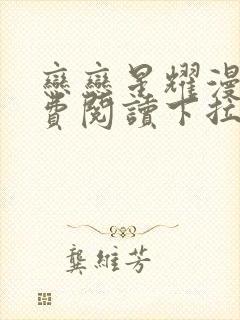 戀戀星耀漫
費閱讀下拉
龔維芳